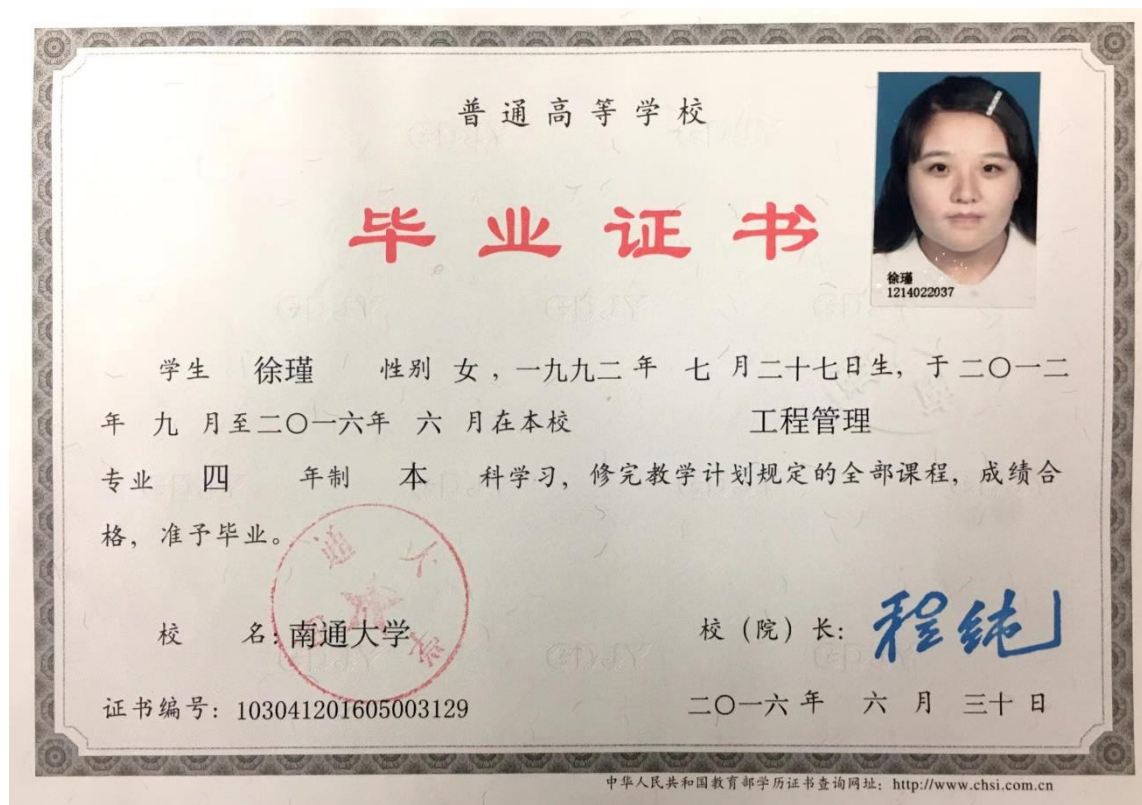 普通高等学校
毕业证书
徐瑾
1214022037
学生 徐瑾 性别 女，一九九二年 七 月二十七日生，于二〇一二
年 九 月至二〇一六年 六 月在本校 工程管理
专业 四 年制 本 科学习，修完教学计划规定的全部课程，成绩合
格，准予毕业。
校 名：南通大学
校（院）长：程纯
证书编号：103041201605003129
二〇一六年 六 月 三十日
中华人民共和国教育部学历证书查询网址：http://www.chsi.com.cn